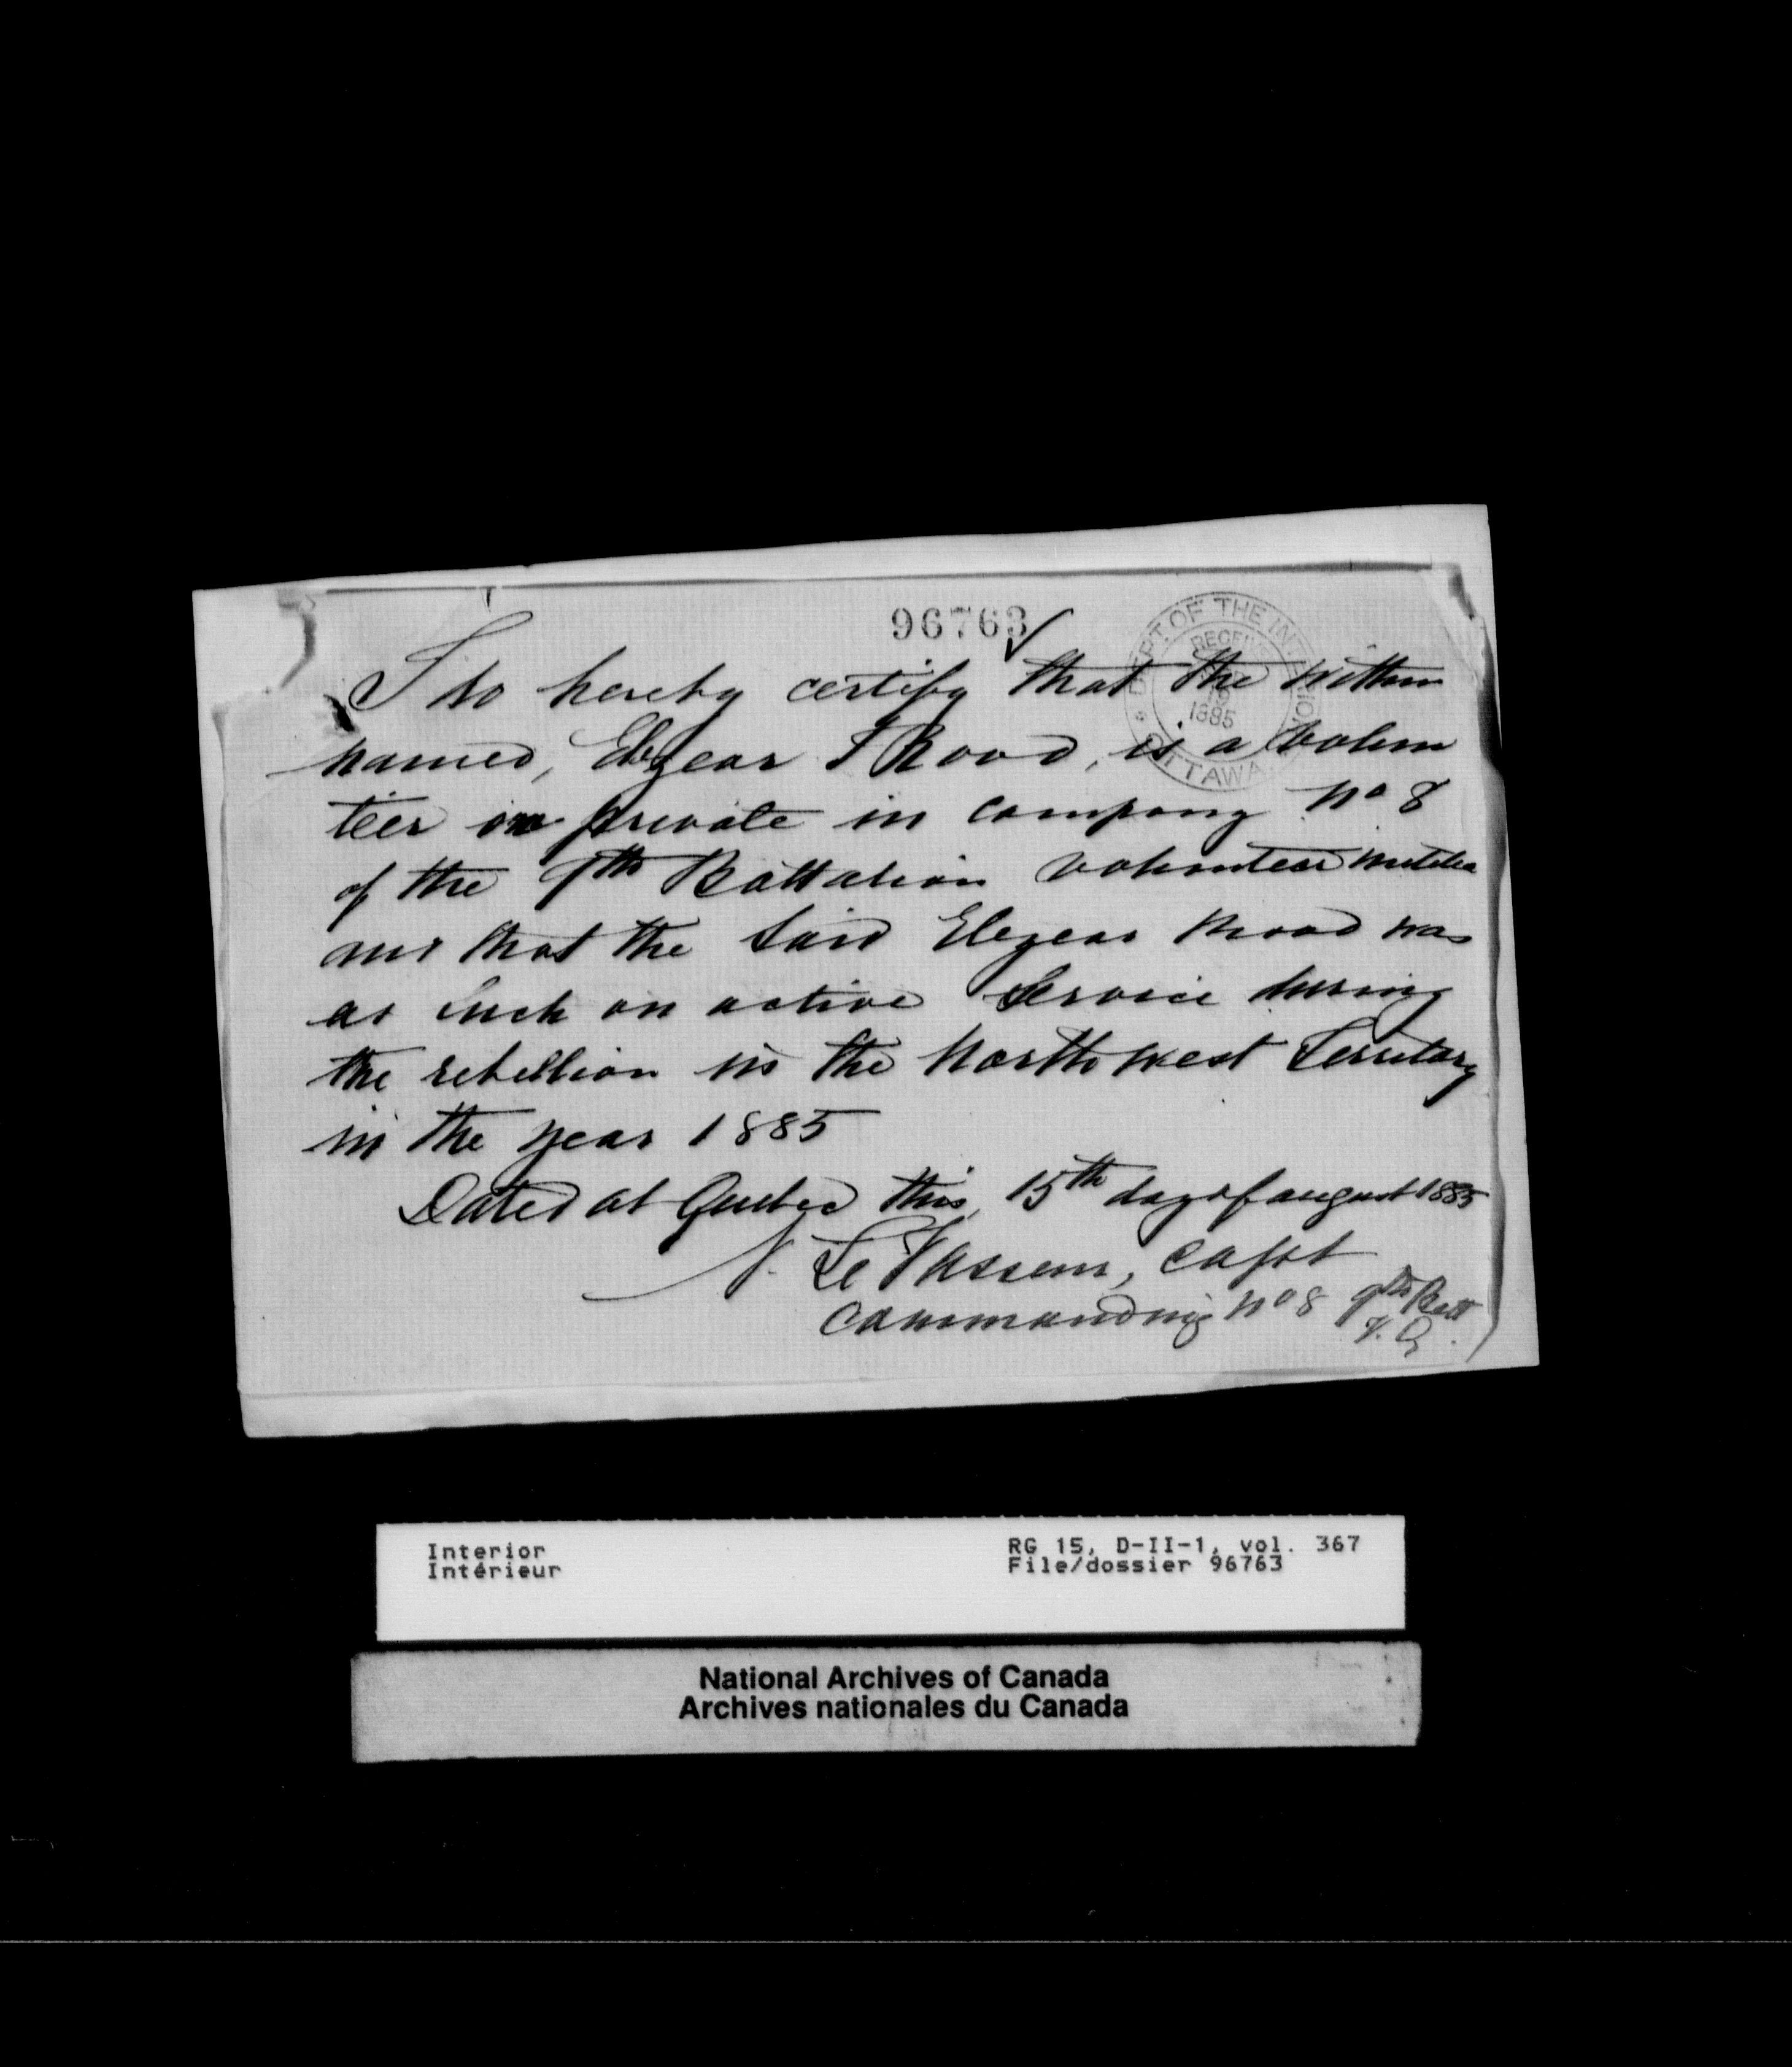 96763
DEPT OF THE INTERIOR
RECEIVED
1885
OTTAWA
I do hereby certify that the within
named, Elzear, is a volun
teer or private in company No 8
of the 9th Battalion volunteer militia
and that the said Elzear was
as such on active service during
the rebellion in the North West Territory
in the year 1885
Dated at Quebec this 15th day of august 1885
N. Le Vasseur, Capt
Commanding No 8 9th Batt
V. Q.
Interior
Intérieur
RG 15, D-II-1, vol. 367
File/dossier 96763
National Archives of Canada
Archives nationales du Canada